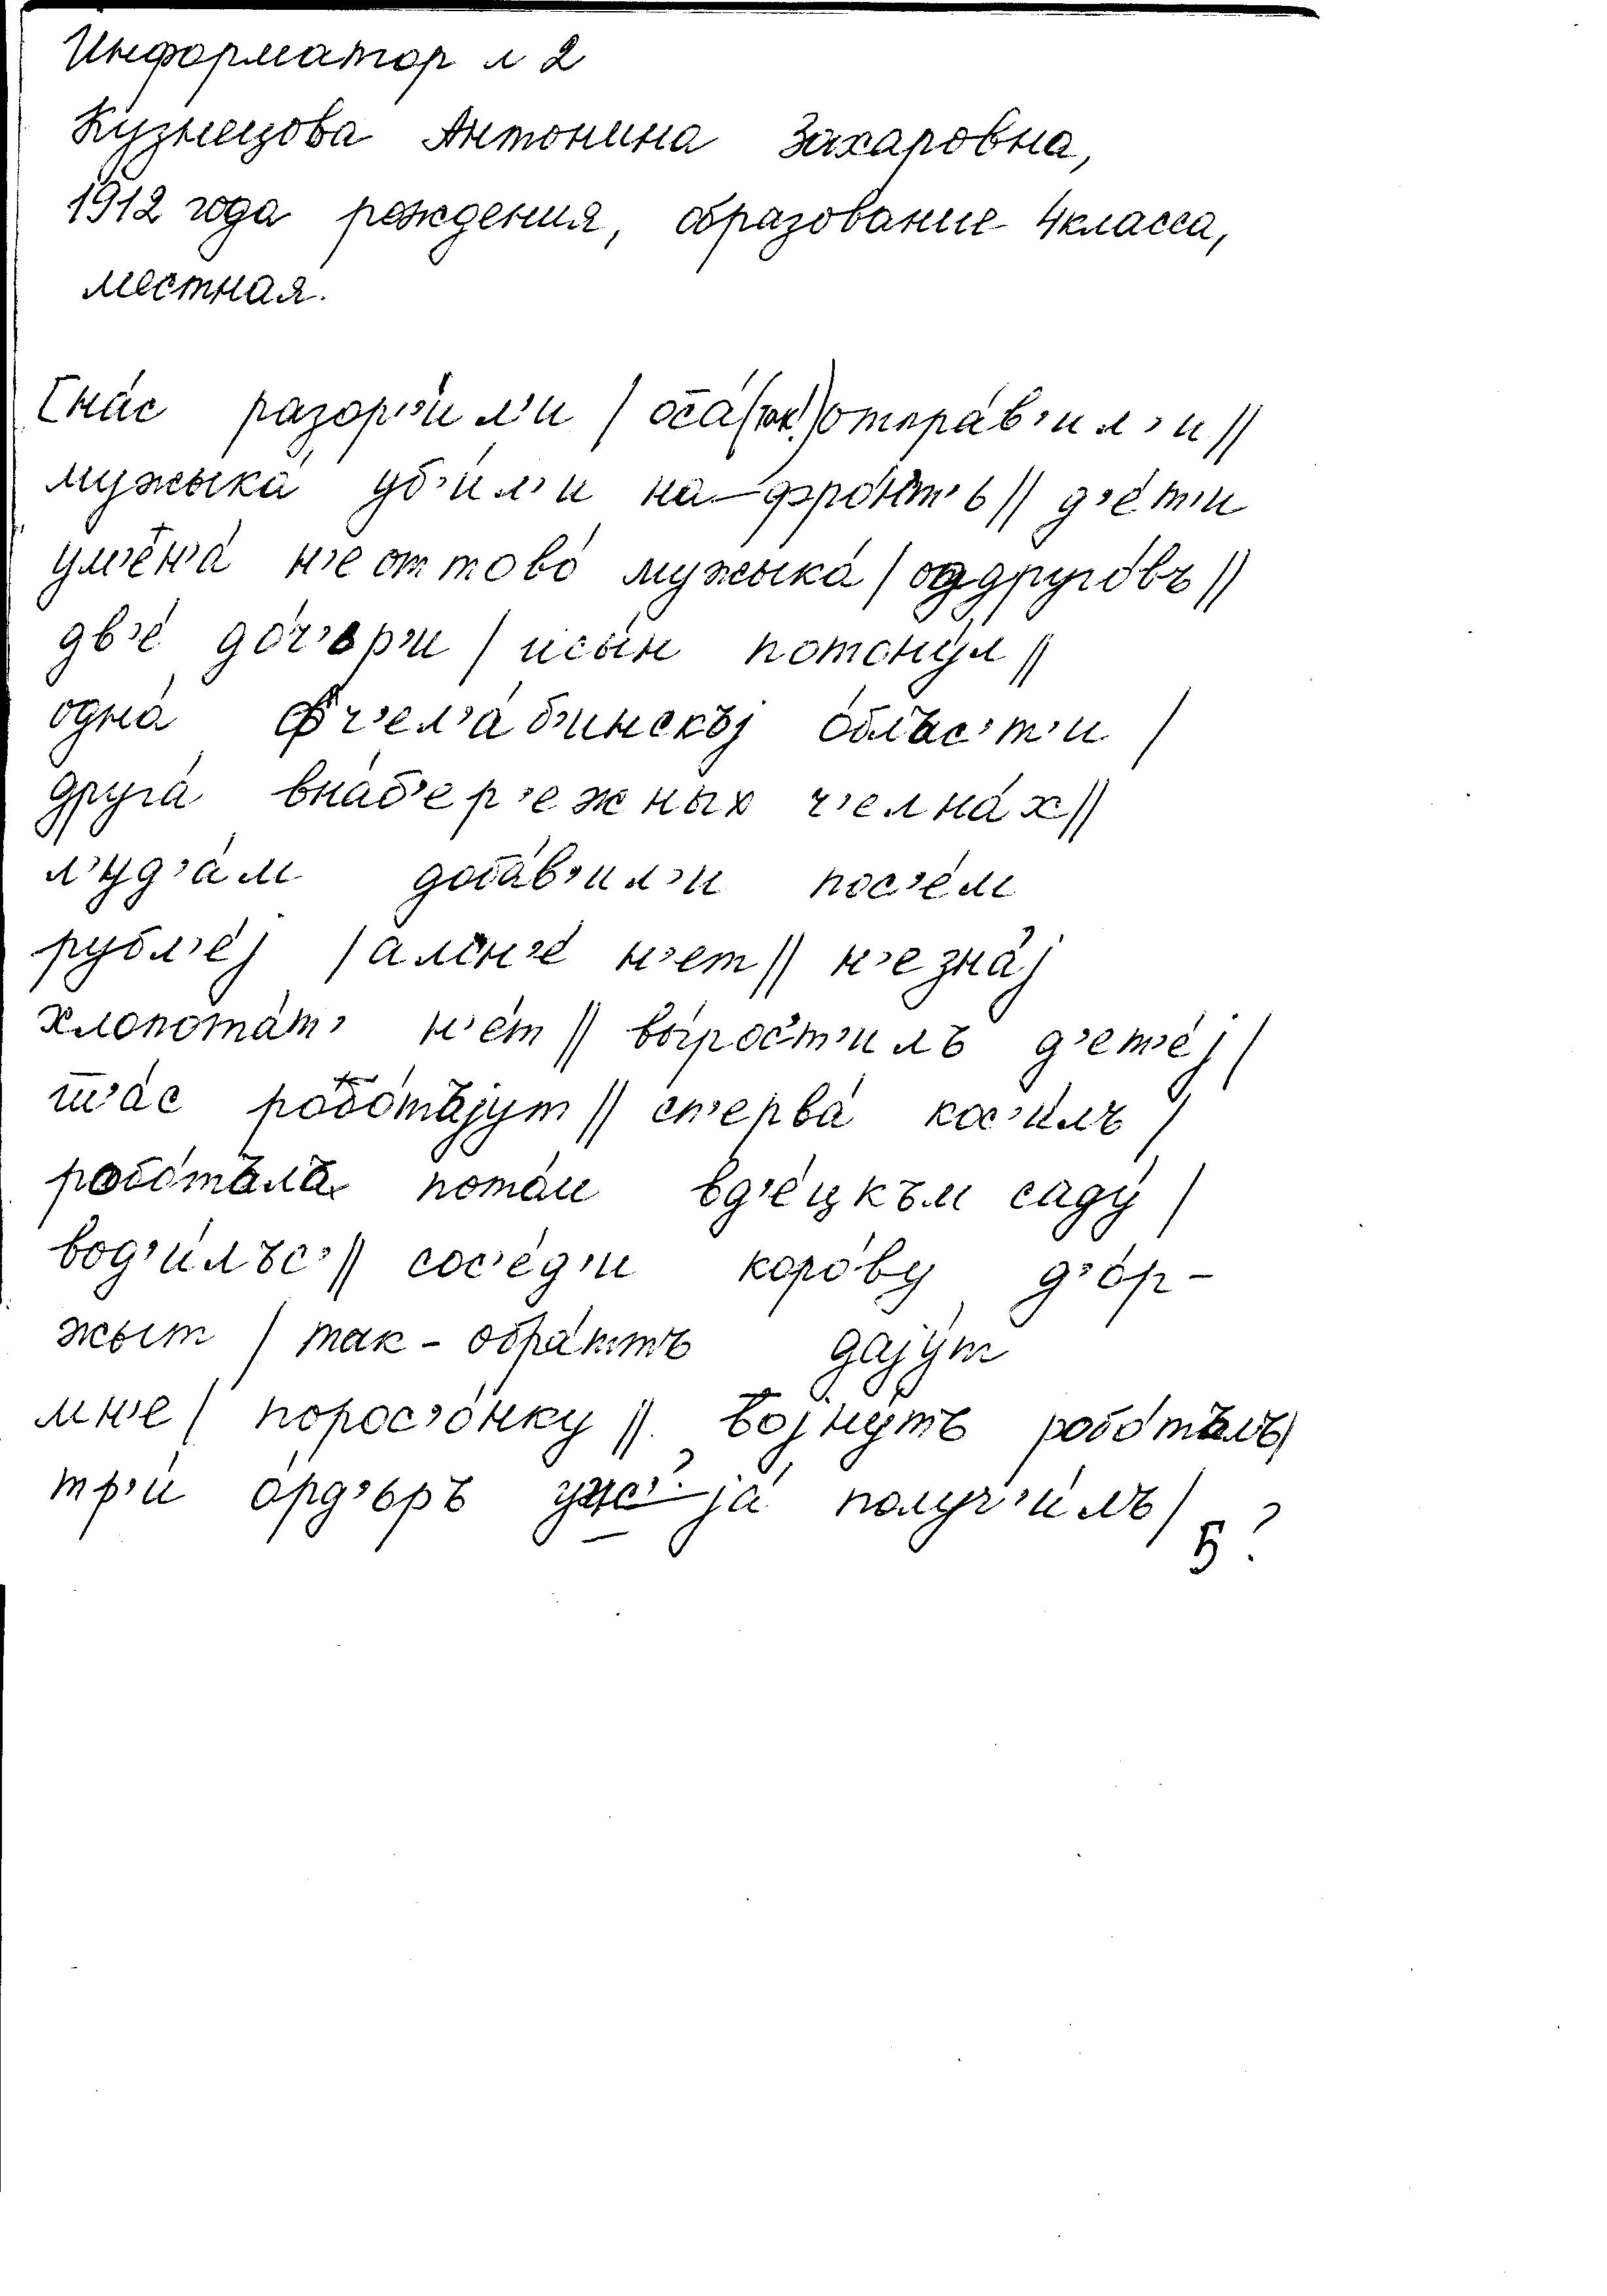 Информатор л 2
Кузнецова Антонина Захаровна,
1912 года рождения, образование 4 класса,
местная.
[на́с разор'и́л'и / оса́(так!)отпра́в'ил'и //
мужыка́ уб'и́л'и на–фро́н'т'ь // д'е́т'и
ум'ен'а́ н'еоттово́ мужыка́ / оддруго́въ //
дв'е́ до́ч'ьр'и / исы́н потону́л //
одна́ фч'ел'а́б'инскъj о́блъс'т'и /
друга́ вна́б'ер'ежных ч'елна́х //
л'уд'а́м доба́в'ил'и пос'е́м
рубл'е́j / амн'е́ н'ет // н'езна́j
хлопота́т' н'е́т // вы́рос'т'илъ д'ет'е́j /
ш'а́с робо́тъjут // сп'ерва́ кос'и́лъ /
робо́тълъ пото́м вд'е́цкъм саду́ /
вод'и́лъс' // сос'е́д'и коро́ву д'о́р-
жыт / так – обра́ттъ даjу́т
мн'е / порос'о́нку // воjну́тъ робо́тълъ /
тр'и́ о́рд'ьръ уж–jа́ получ'и́лъ /
5 ?